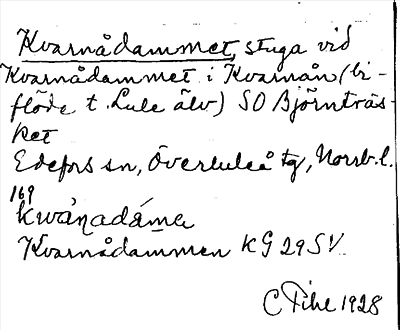 Kvarnådammet, stuga vid
Kvarnådammet i Kvarnån (bi-
flöde t. Lule älv) SO Björnträs-
ket
Edefors sn, Överluleå tg, Norrb. l.
169
kwàṇadáma
Kvarnådammen KG 29 SV.
C Pihl 1928